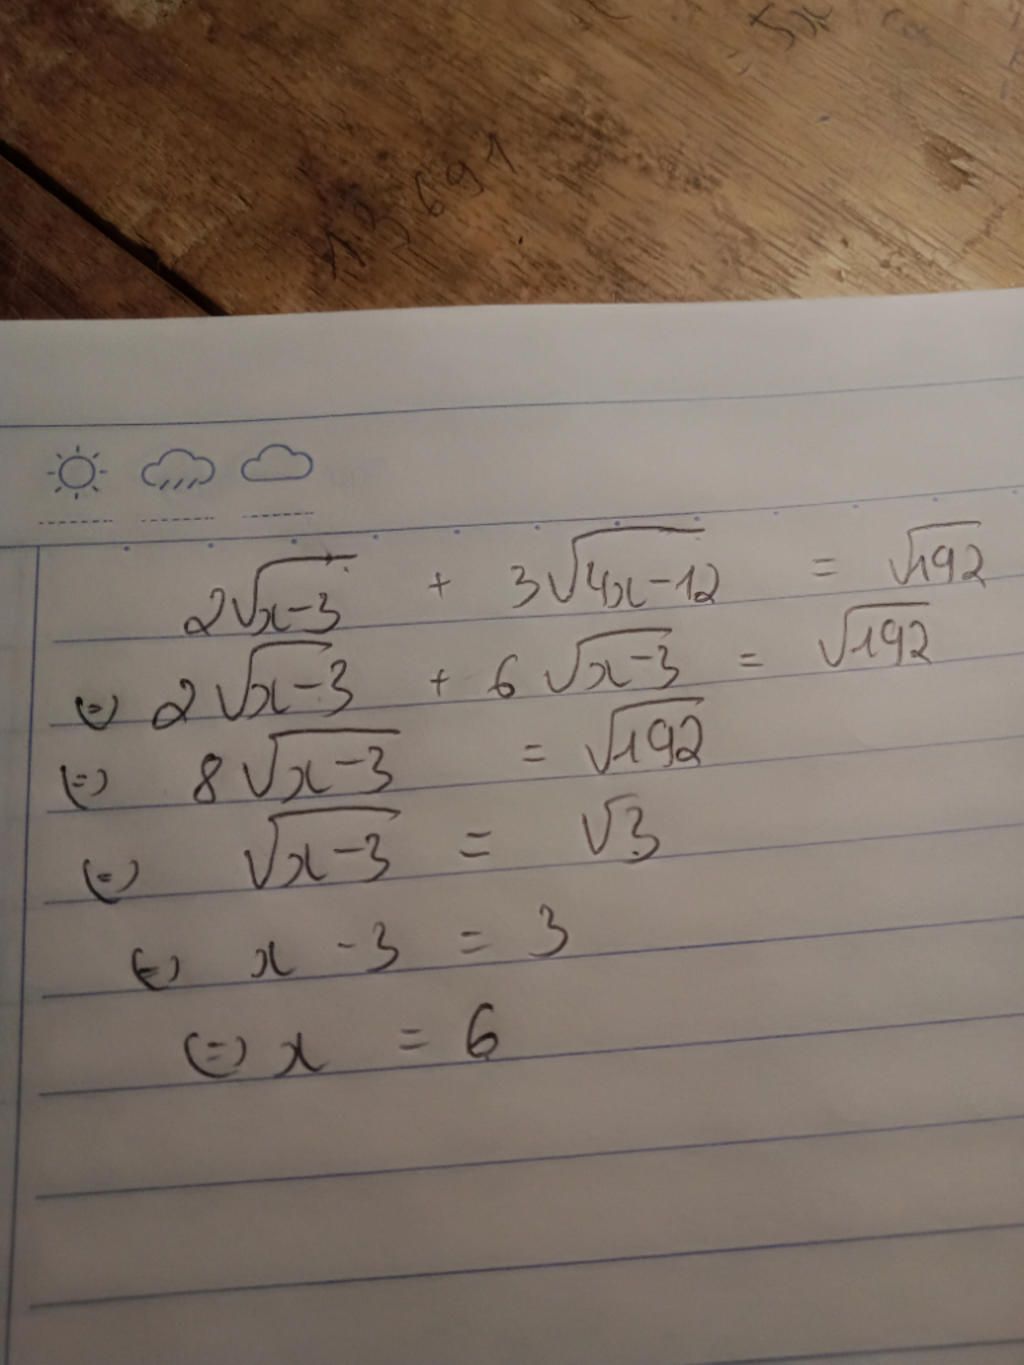 13691
2√(x-3) + 3√(4x-12) = √192
(=) 2√(x-3) + 6√(x-3) = √192
(=) 8√(x-3) = √192
(=) √(x-3) = √3
(=) x - 3 = 3
(=) x = 6